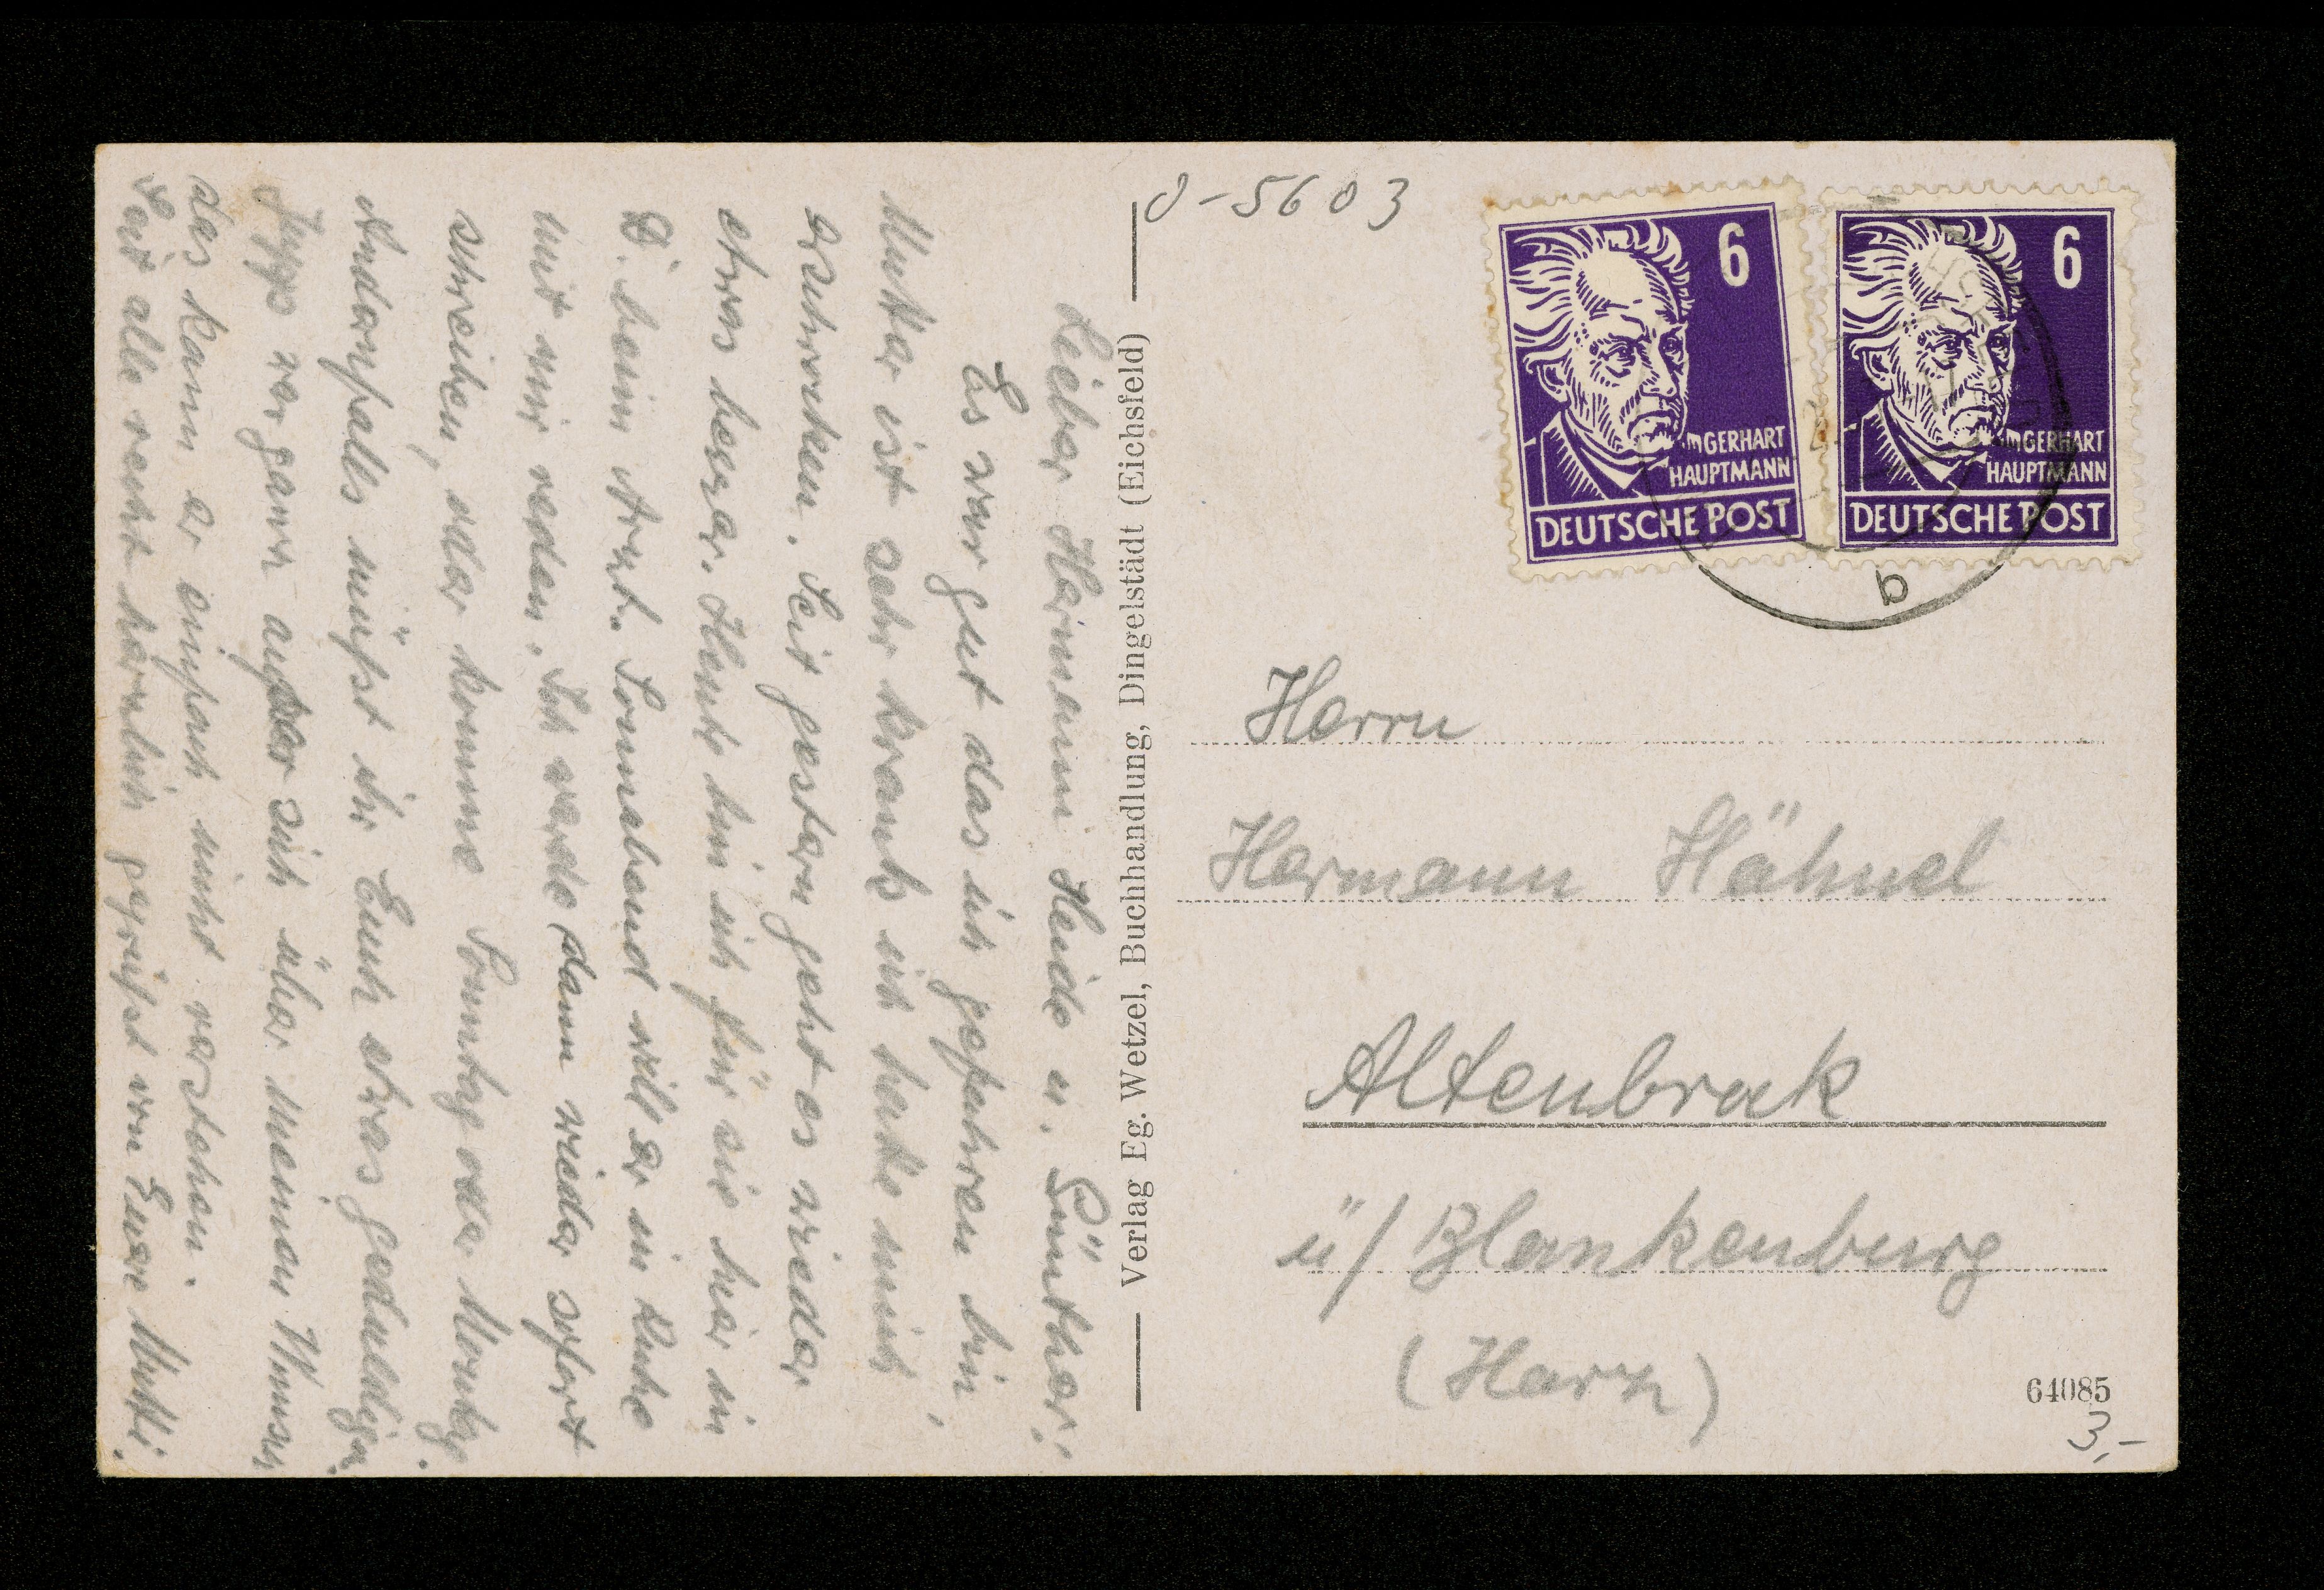 Lieber Hermann Heide u. Günther!
Es war gut das ich gefahren bin,
Mutter ist sehr krank ich habe mich
erschrocken. Seit gestern geht es wieder
etwas besser. Heute bin ich für sie hier in
D. beim Arzt. Sonnabend will er in Ruhe
mit mir reden. Ich werde dann wieder sofort
schreiben, oder komme Sonntag oder Montag.
Andernfalls müßt ihr Euch etwas gedulden.
war ganz außer sich über meinen
das kann er einfach nicht verstehen.
Seid alle recht herzlich gegrüßt von Eurer Mutti.
Verlag Eg. Wetzel, Buchhandlung, Dingelstädt (Eichsfeld)
0-5603
6
GERHART
HAUPTMANN
DEUTSCHE POST
6
GERHART
HAUPTMANN
DEUTSCHE POST
a
Herrn
Hermann Hähnel
Altenbrak
ü/ Blankenburg
(Harz)
64085
3,-